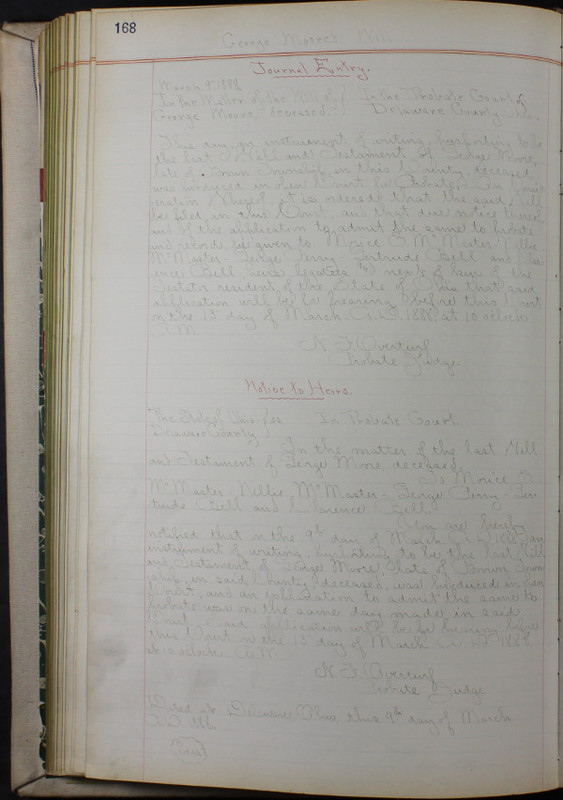 168
George Moore's Will
Journal Entry.
March 9" 1888
In the Matter of the Will of } In the Probate Court of
George Moore deceased. } Delaware County O.
This day, an instrument of writing, purporting to be
the last Will and Testament of George Moore,
late of Township, in this County, deceased
was produced in open Court for Probate. In
of, it is ordered that the said Will
be filed in this Court, and that due notice
of the application to admit the same to probate
and record, be given to McMaster, Nellie
McMaster, George Perry, Gertrude Bell and
Bell, next of kin of the
Testator resident of the State of Ohio that said
application will be for hearing before this Court
on the 13" day of March A.D. 1888 at 10 o'clock
A.M.
N. F. Overturf
Probate Judge.
Notice to Heirs.
The State of Ohio } ss In Probate Court
Delaware County
In the matter of the last Will
and Testament of George Moore, deceased,
To
McMaster, Nellie McMaster, George Perry, Ger-
trude Bell and Clarence Bell.
You are hereby
notified that on the 9th day of March A.D. 1888, an
instrument of writing, purporting to be the last Will
and Testament, of George Moore, late of Town-
ship, in said County, deceased, was produced in open
Court, and an application to admit the same to
probate was on the same day made in said
Court. Said application will be for hearing before
this Court on the 13" day of March A.D. 1888
at o'clock A.M.
N. F. Overturf
Probate Judge
Dated at Delaware Ohio, this 9th day of March
A.D. 1888
(Seal)